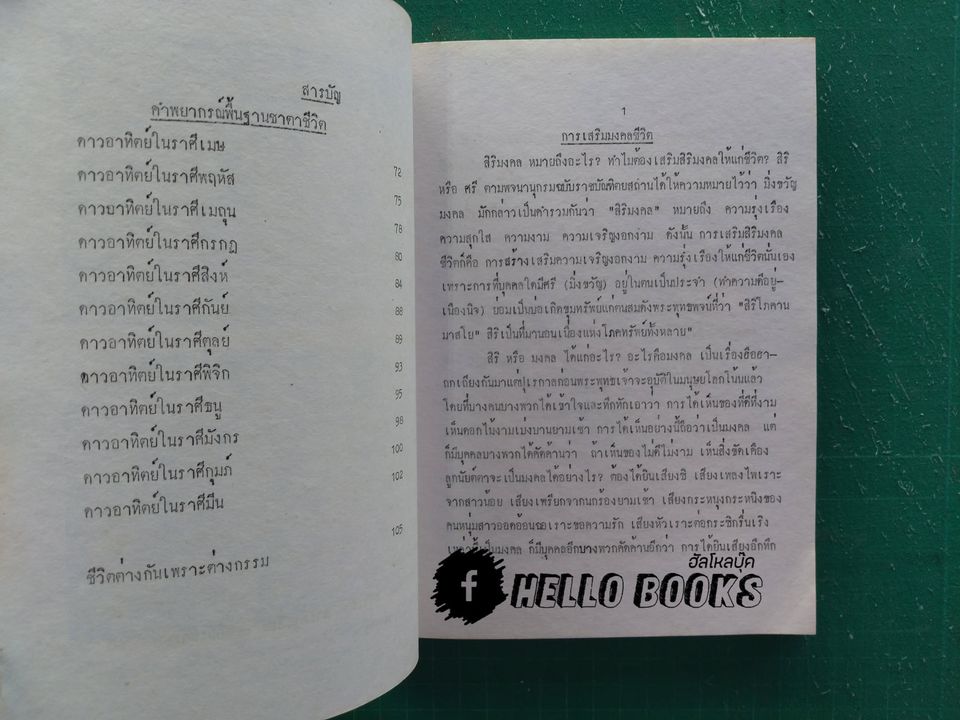 สารบัญ
คำพยากรณ์พื้นฐานชาตาชีวิต
ดาวอาทิตย์ในราศีเมษ 72
ดาวอาทิตย์ในราศีพฤหัส 75
ดาวอาทิตย์ในราศีเมถุน 78
ดาวอาทิตย์ในราศีกรกฎ 80
ดาวอาทิตย์ในราศีสิงห์ 84
ดาวอาทิตย์ในราศีกันย์ 88
ดาวอาทิตย์ในราศีตุลย์ 89
ดาวอาทิตย์ในราศีพิจิก 93
ดาวอาทิตย์ในราศีธนู 95
ดาวอาทิตย์ในราศีมังกร 98
ดาวอาทิตย์ในราศีกุมภ์ 100
ดาวอาทิตย์ในราศีมีน 102
ชีวิตต่างกันเพราะต่างกรรม 105
1
การเสริมมงคลชีวิต
สิริมงคล หมายถึงอะไร? ทำไมต้องเสริมสิริมงคลให้แก่ชีวิต? สิริ
หรือ ศรี ตามพจนานุกรมฉบับราชบัณฑิตยสถานได้ให้ความหมายไว้ว่า มิ่งขวัญ
มงคล มักกล่าวเป็นคำรวมกันว่า "สิริมงคล" หมายถึง ความรุ่งเรือง
ความสุกใส ความงาม ความเจริญงอกงาม ดังนั้น การเสริมสิริมงคล
ชีวิตก็คือ การสร้างเสริมความเจริญงอกงาม ความรุ่งเรืองให้แก่ชีวิตนั่นเอง
เพราะการที่บุคคลใดมีศรี (มิ่งขวัญ) อยู่ในตนเป็นประจำ (ทำความดีอยู่-
เนืองนิจ) ย่อมเป็นบ่อเกิดขุมทรัพย์แก่ตนสมดังพระพุทธพจน์ที่ว่า "สิริโภคาน
มาสโย" สิริเป็นที่มานอนเนื่องแห่งโภคทรัพย์ทั้งหลาย"
สิริ หรือ มงคล ได้แก่อะไร? อะไรคือมงคล เป็นเรื่องฮือฮา-
ถกเถียงกันมาแต่ปุเรกาลก่อนพระพุทธเจ้าจะอุบัติในมนุษยโลกโน้นแล้ว
โดยที่บางคนบางพวกได้เข้าใจและทึกทักเอาว่า การได้เห็นของที่ดีที่งาม
เห็นดอกไม้งามเบ่งบานยามเช้า การได้เห็นอย่างนี้ถือว่าเป็นมงคล แต่
ก็มีบุคคลบางพวกได้คัดค้านว่า ถ้าเห็นของไม่ดีไม่งาม เห็นสิ่งขัดเคือง
ลูกนัยต์ตาจะเป็นมงคลได้อย่างไร? ต้องได้ยินเสียงซิ เสียงเพลงไพเราะ
จากสาวน้อย เสียงเพรียกจากนกร้องยามเช้า เสียงกระหนุงกระหนิงของ
คนหนุ่มสาวออดอ้อนฉอเราะขอความรัก เสียงหัวเราะต่อกระซิกรื่นเริง
เป็นมงคล ก็มีบุคคลอีกบางพวกคัดค้านอีกว่า การได้ยินเสียงอึกทึก
ฮัลโหลบุ๊ค
f HELLO BOOKS